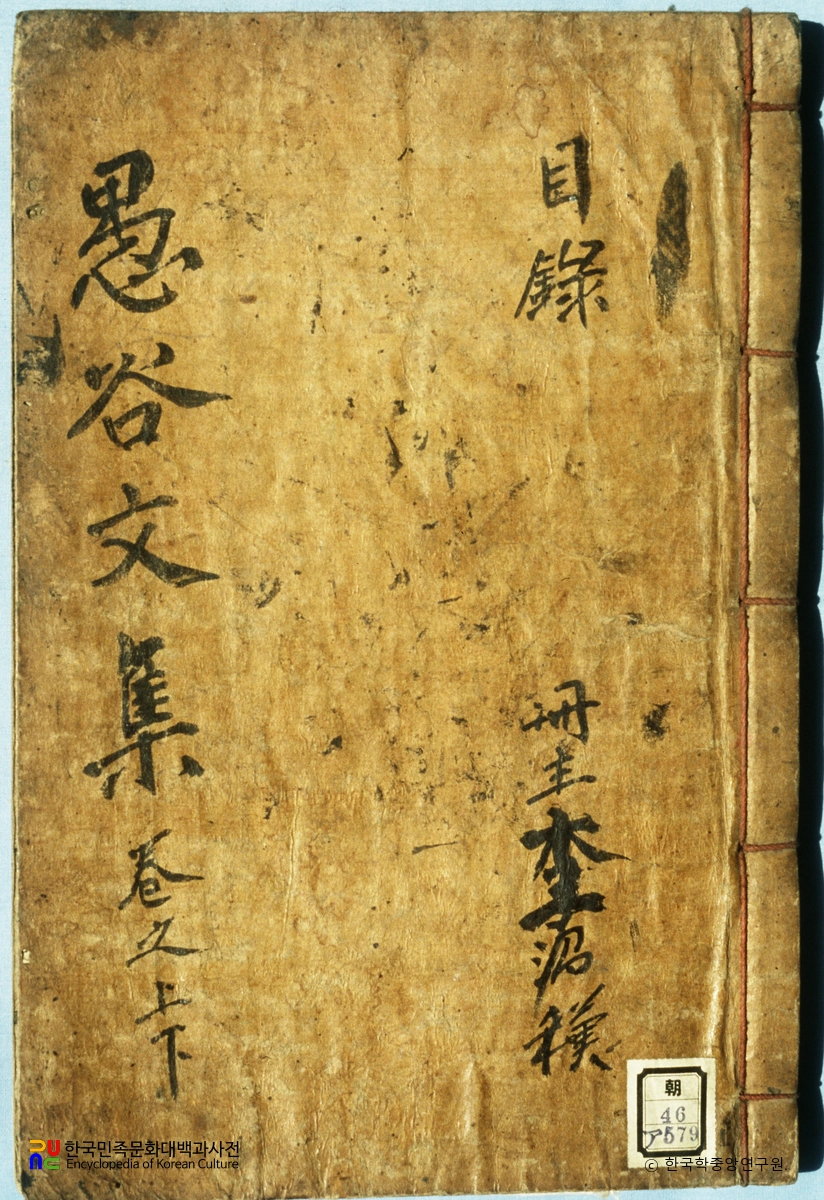 目錄
冊主
愚谷文集 卷之上下
朝
46
ア579
한국민족문화대백과사전
Encyclopedia of Korean Culture
© 한국학중앙연구원.